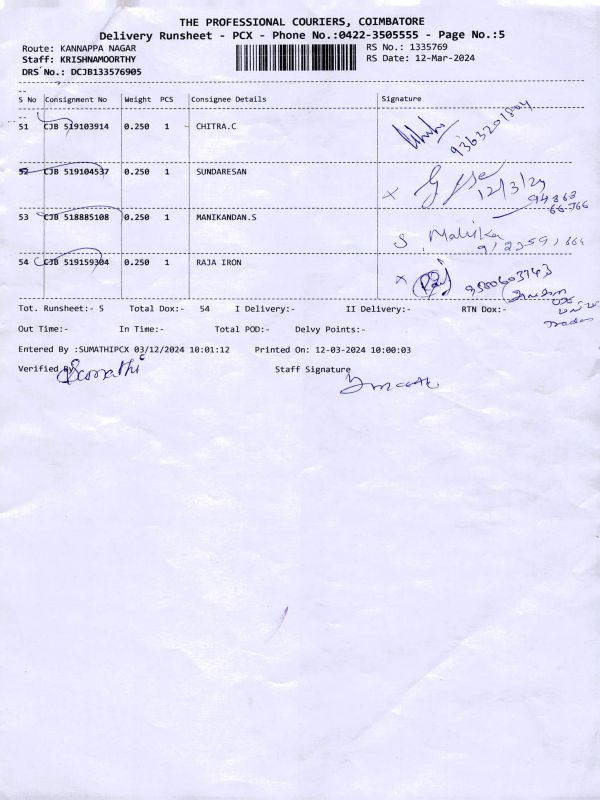 THE PROFESSIONAL COURIERS, COIMBATORE
Delivery Runsheet - PCX - Phone No.:0422-3505555 - Page No.:5
Route: KANNAPPA NAGAR RS No.: 1335769
Staff: KRISHNAMOORTHY RS Date: 12-Mar-2024
DRS No.: DCJB133576905
S No Consignment No Weight PCS Consignee Details Signature
51 CJB 519103914 0.250 1 CHITRA.C 9363201804
52 CJB 519104537 0.250 1 SUNDARESAN 12/3/24
53 CJB 518885108 0.250 1 MANIKANDAN.S S. Malika
54 CJB 519159304 0.250 1 RAJA IRON
Tot. Runsheet:- 5 Total Dox:- 54 I Delivery:- II Delivery:- RTN Dox:-
Out Time:- In Time:- Total POD:- Delvy Points:-
Entered By :SUMATHIPCX 03/12/2024 10:01:12 Printed On: 12-03-2024 10:00:03
Verified By Sumathi Staff Signature